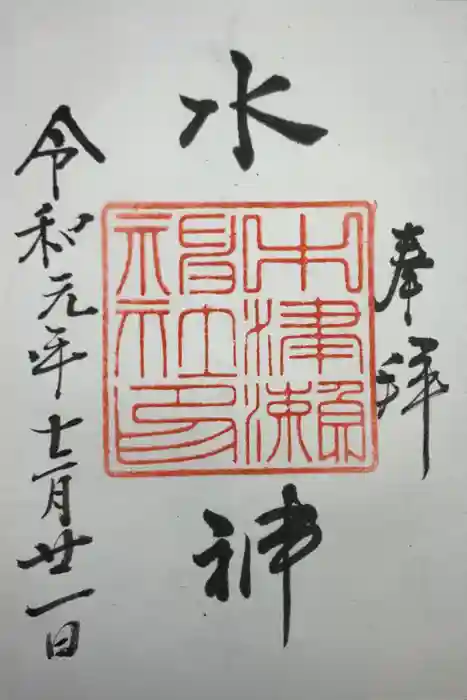 奉拝
水神
津瀬神社印
令和元年七月廿一日